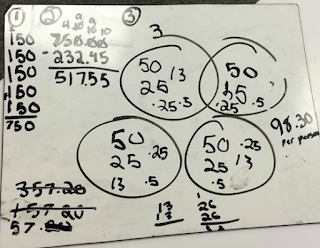 ①
150
150
150
150
150
750
②
9 9
4 10 10 10
750.00
- 232.45
517.55
③
3
50
13
25
.25 .5
50
15
.25 .5
50
25
.25
13
.5
50
.25
25
13
.5
98.30
Per person
357.20
157.20
57.
13
13
26
26